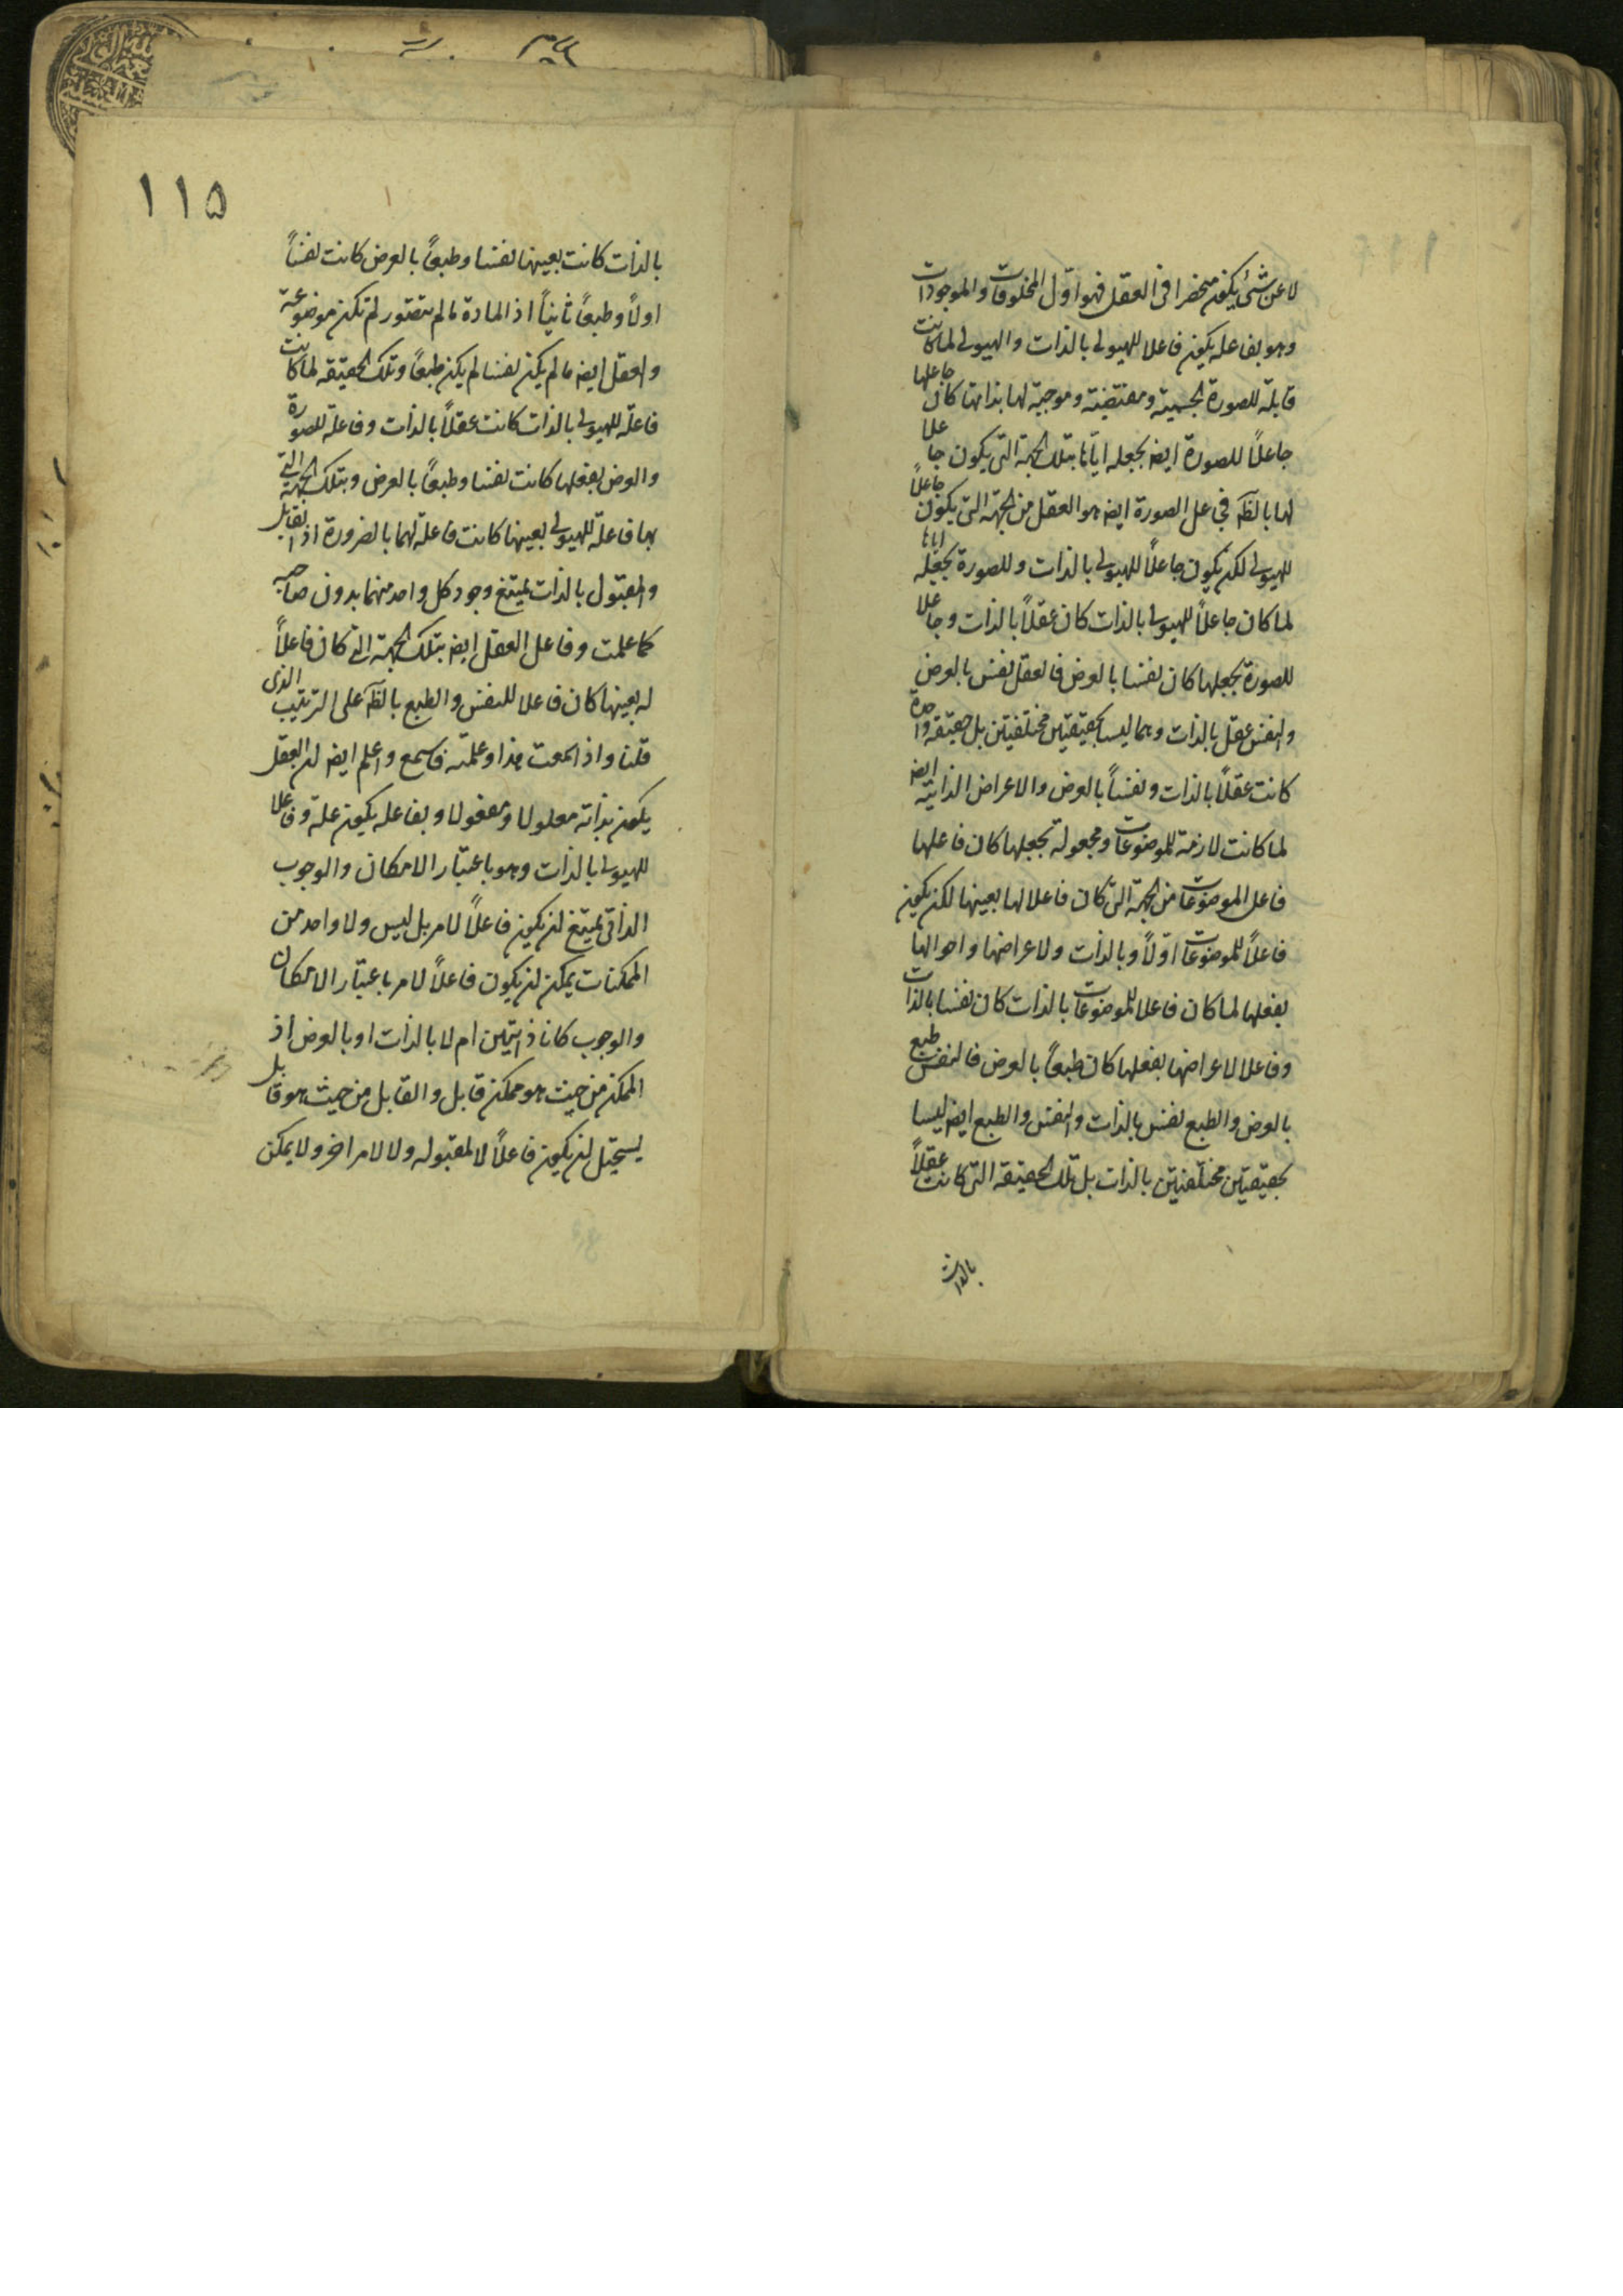 لا عن شئ يكون منحصرا فى العقل فهو اوّل المخلوقات والموجودات
وهو بفاعله يكون فاعلا للهيولى بالذات والهيولى لما كانت
قابلة للصورة الجسمية ومقتضية وموجبة لها بذاتها كان جاعلها
جاعلاً للصورة ايضا بجعله ايّاها بتلك الجهة التى يكون جاعلا
لها بالظه فجاعل الصورة ايضا هو العقل من الجهة التى يكون جاعلاً
للهيولى لكن يكون جاعلاً للهيولى بالذات وللصورة بجعله اياها
لما كان جاعلاً للهيولى بالذات كان عقلاً بالذات وجاعلا
للصورة بجعلها كان نفسا بالعرض فالعقل نفس بالعرض
والنفس عقل بالذات وهما ليسا بحقيقتين مختلفتين بل حقيقة واحدة
كانت عقلاً بالذات ونفساً بالعرض والاعراض الذاتية ايضا
لما كانت لازمة للموضوعات ومجعولة بجعلها كان فاعلها
فاعل الموضوعات من الجهة التى كان فاعلا لها بعينها لكن يكون
فاعلاً للموضوعات اوّلاً وبالذات ولاعراضها واحوالها
بفعلها لما كان فاعلا للموضوعات بالذات كان نفسا بالذات
وفاعلا لاعراضها بفعلها كان طبعاً بالعرض فالنفس طبع
بالعرض والطبع نفس بالذات والنفس والطبع ايضا ليسا
بحقيقتين مختلفتين بالذات بل تلك الحقيقة التى كانت عقلاً
بالذات
١١٥
بالذات كانت بعينها نفسا وطبعاً بالعرض كانت نفساً
اولاً وطبعاً ثانياً اذ المادة ما لم تتصور لم تكن موضوعة
والعقل ايضا ما لم يكن نفسا لم يكن طبعاً وتلك الحقيقة لما كانت
فاعلة للهيولى بالذات كانت عقلاً بالذات وفاعلة للصورة
والعرض بفعلها كانت نفسا وطبعاً بالعرض وبتلك الجهة التى
بها فاعلة للهيولى بعينها كانت فاعلة لهما بالضرورة اذ القابل
والمقبول بالذات يمتنع وجود كل واحد منهما بدون صاحبه
كما علمت وفاعل العقل ايضا بتلك الجهة التى كان فاعلاً
له بعينها كان فاعلا للنفس والطبع بالظه على الترتيب الذى
قلنا واذا سمعت هذا وعلمته فاسمع واعلم ايضا ان العقل
يكون بذاته معلولا ومفعولا وبفاعله يكون علة وفاعلا
للهيولى بالذات وهو باعتبار الامكان والوجوب
الذاتى يمتنع ان يكون فاعلاً لامر بل ليس ولا واحد من
الممكنات يمكن ان يكون فاعلاً لامر باعتبار الامكان
والوجوب كانا ذاتيين ام لا بالذات او بالعرض اذ
الممكن من حيث هو ممكن قابل والقابل من حيث هو قابل
يستحيل ان يكون فاعلاً لا لمقبوله ولا لامر اخر ولا يمكن